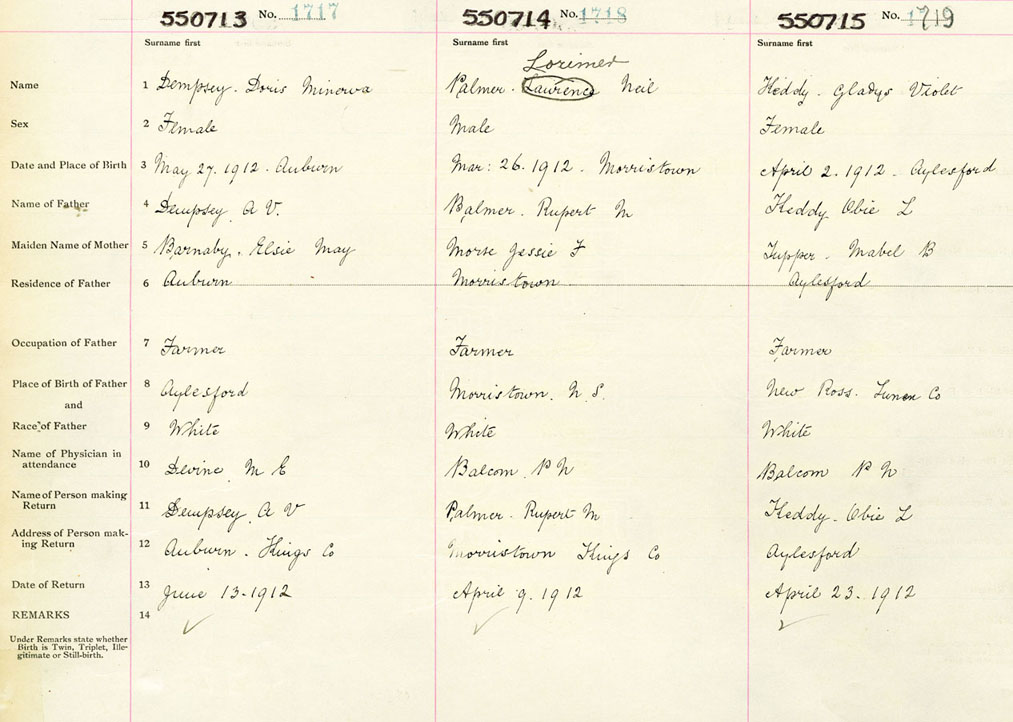 550713 No. 1717 550714 No. 1718 550715 No. 1719
Surname first Surname first Surname first
Lorimer
Name 1 Dempsey. Doris Minerva Palmer. Lawrence Neil Keddy. Gladys Violet
Sex 2 Female Male Female
Date and Place of Birth 3 May 27. 1912. Auburn Mar: 26. 1912. Morristown April 2. 1912. Aylesford
Name of Father 4 Dempsey A V. Palmer. Rupert M Keddy Obie L
Maiden Name of Mother 5 Barnaby. Elsie May Morse Jessie F Tupper. Mabel B
Residence of Father 6 Auburn Morristown Aylesford
Occupation of Father 7 Farmer Farmer Farmer
Place of Birth of Father 8 Aylesford Morristown. N.S. New Ross. Lunen Co
and
Race of Father 9 White White White
Name of Physician in
attendance 10 Devine M E Balcom P N Balcom P N
Name of Person making
Return 11 Dempsey A V Palmer. Rupert M Keddy. Obie L
Address of Person mak-
ing Return 12 Auburn. Kings Co Morristown Kings Co Aylesford
Date of Return 13 June 13-1912 April 9. 1912 April 23. 1912
REMARKS 14
Under Remarks state whether
Birth is Twin, Triplet, Ille-
gitimate or Still-birth.